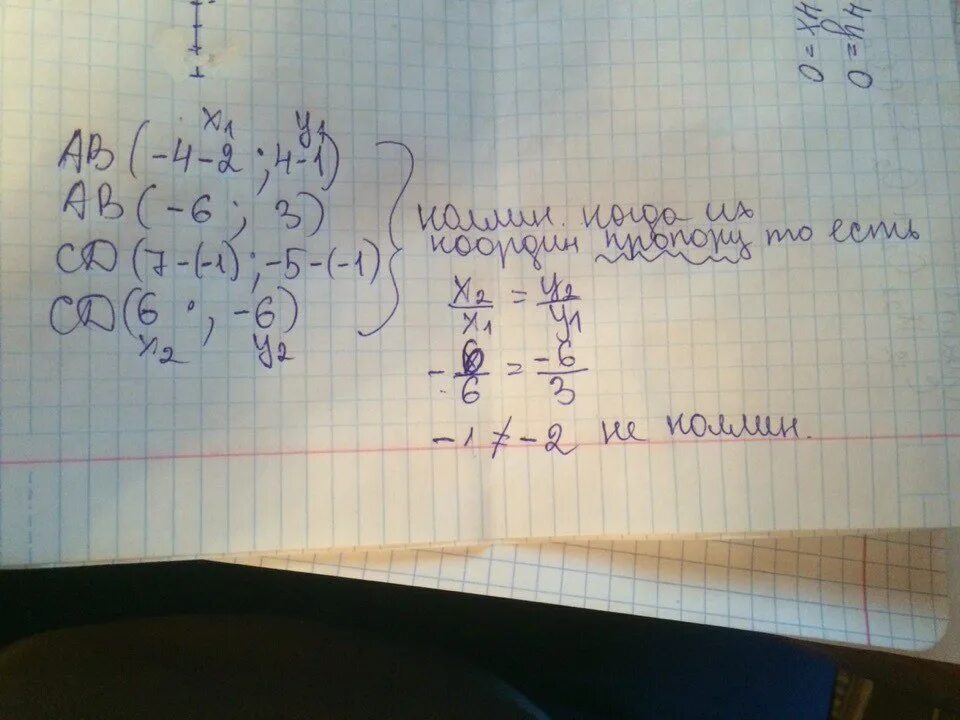 x1 y1
AB (-4-2 ; 4-1)
AB (-6 ; 3)
CD (7-(-1) ; -5-(-1)
CD (6 ; -6)
x2 y2
коллин. когда их
координ пропорц то есть
x2/x1 = y2/y1
-6/6 = -6/3
-1 ≠ -2 не коллин.
4x = 0
4y = 0